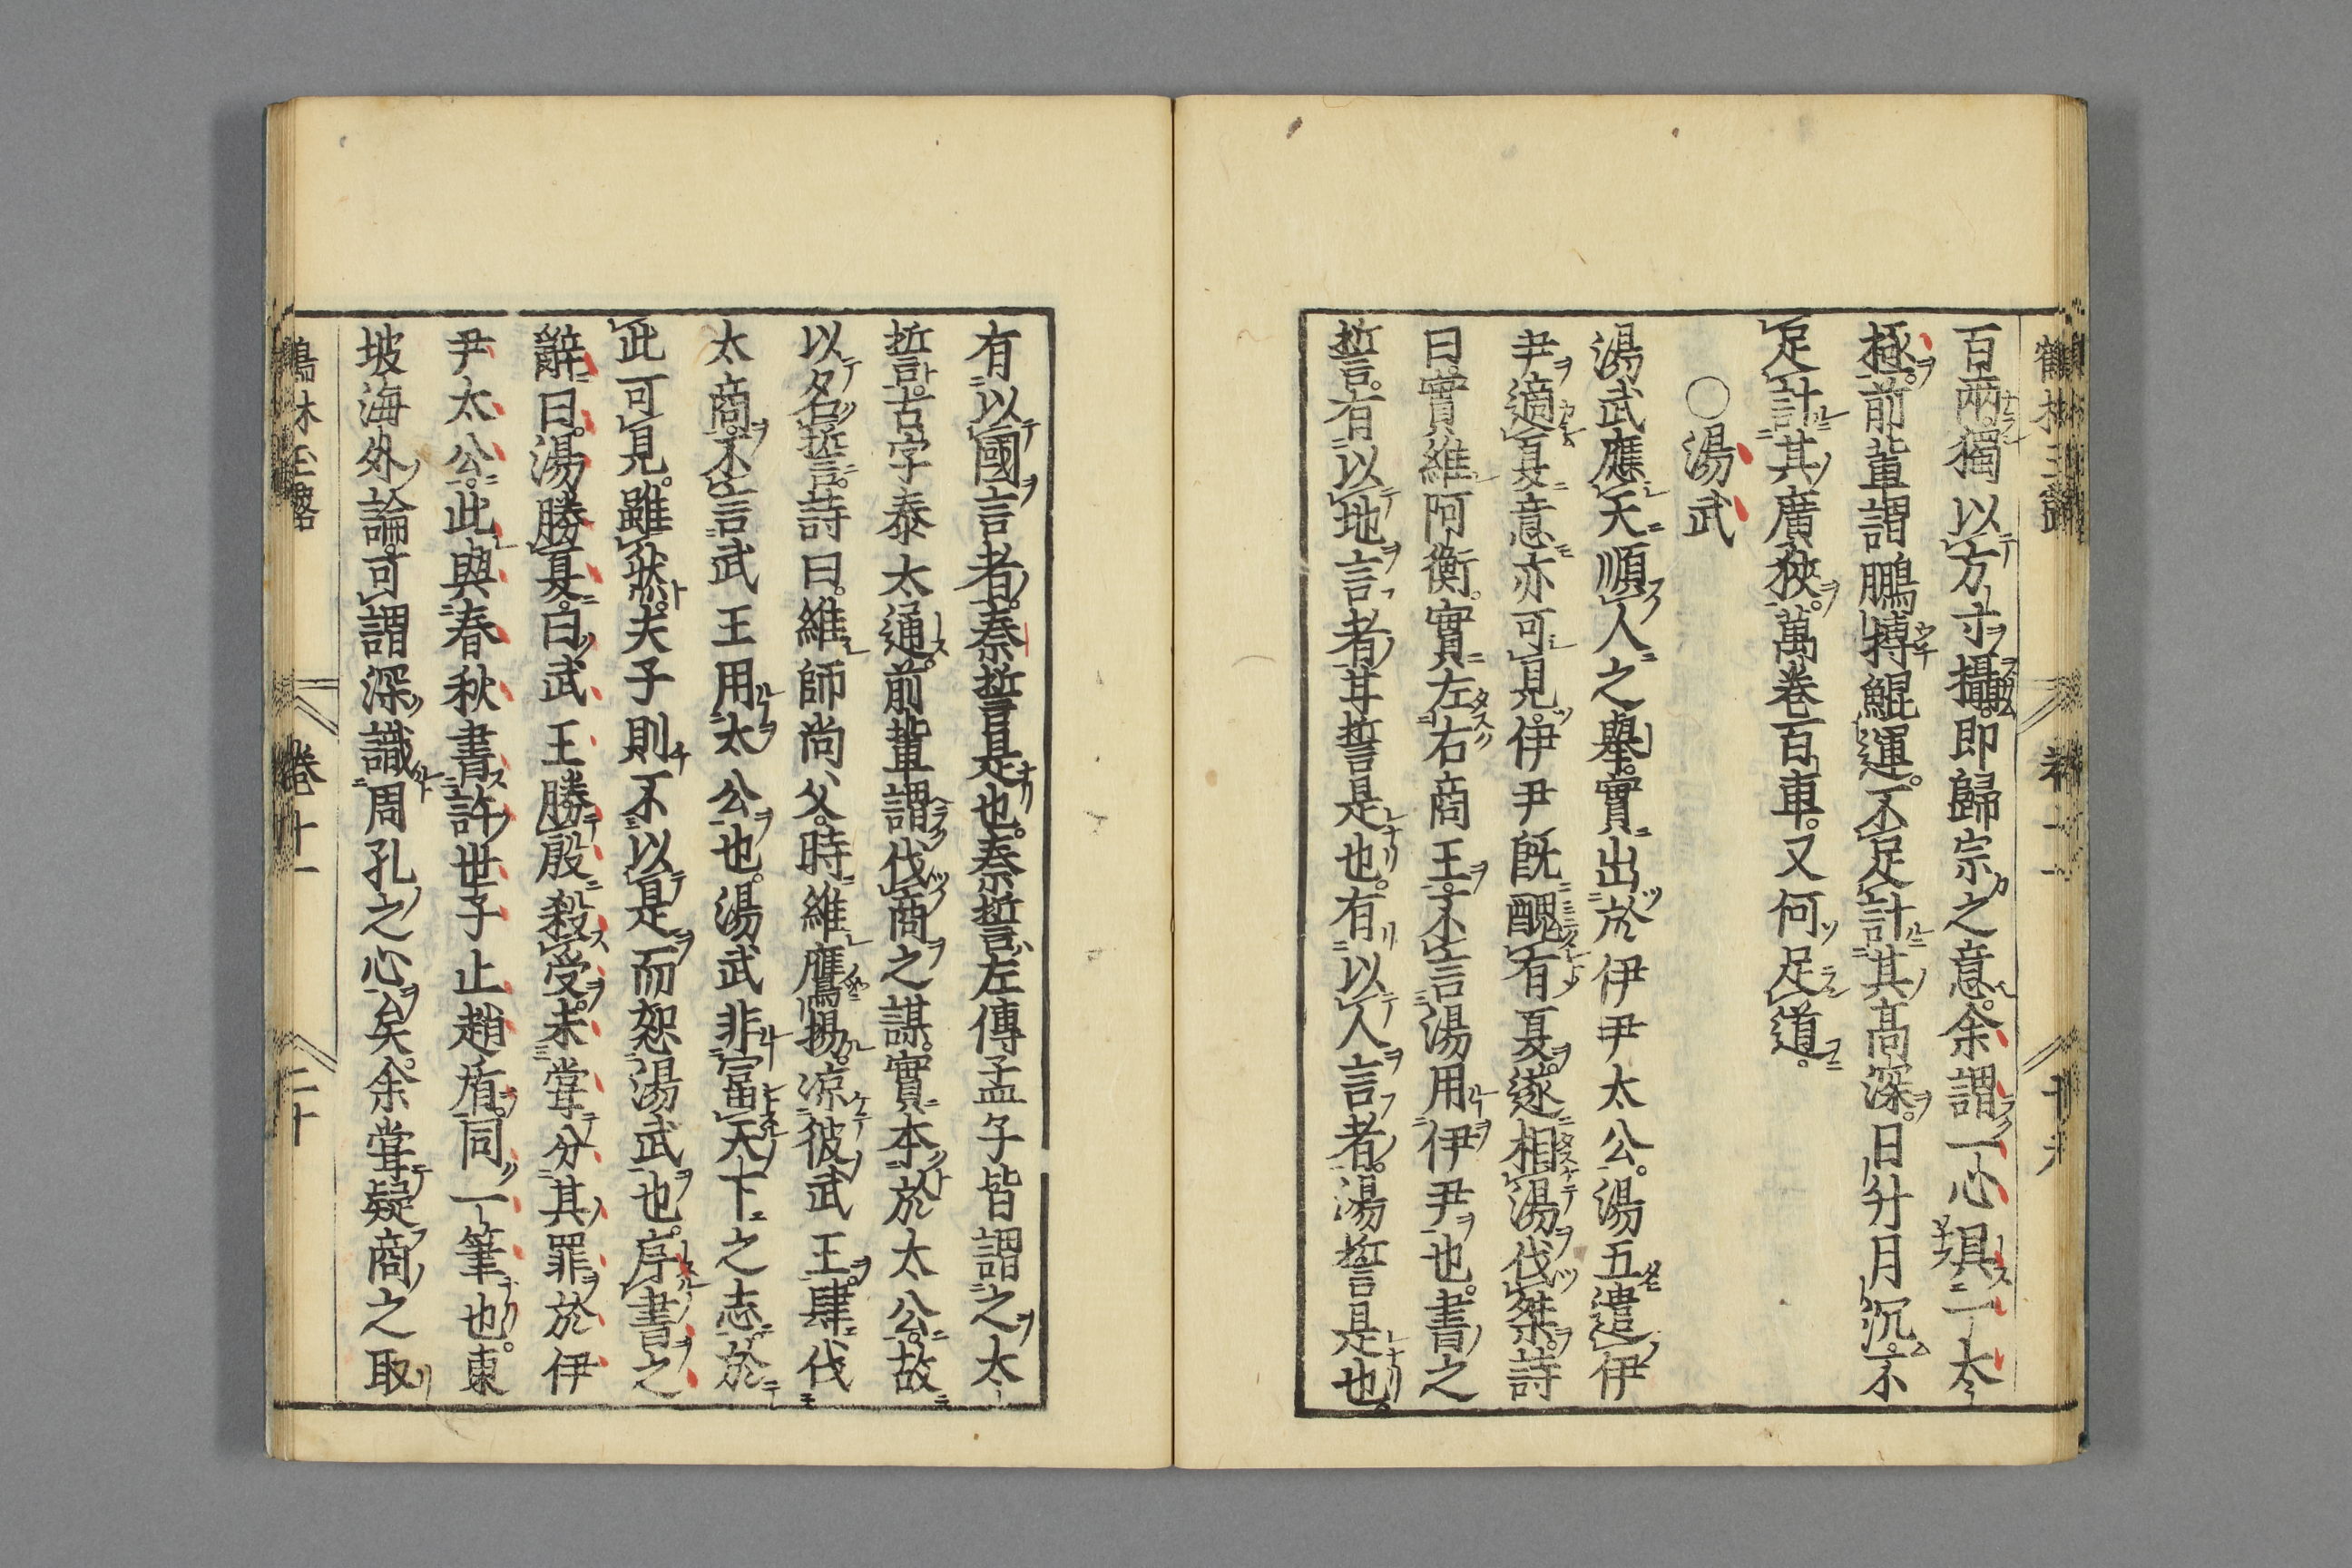 百兩獨以方寸攝即歸宗之意余謂一心俱一太
極前輩謂鵬搏鯤運不足計其髙深日升月沉不
足計其廣狹萬卷百車又何足道
○湯武
湯武應天順人之舉實出於伊尹太公湯五遣伊
尹適夏意亦可見伊尹旣醜有夏遂相湯伐桀詩
曰實維阿衡實左右商王不言湯用伊尹也書之
誓有以地言者甘誓是也有以人言者湯誓是也
有以國言者秦誓是也泰誓左傳孟子皆謂之太
誓古字泰太通前輩謂伐商之謀實本於太公故
以名誓詩曰維師尚父時維鷹揚凉彼武王肆伐
太商不言武王用太公也湯武非富天下之志於
此可見雖然夫子則不以是而恕湯武也序書之
辭曰湯勝夏曰武王勝殷殺受未甞分其罪於伊
尹太公此與春秋書許世子止趙盾同一筆也東
坡海外論可謂深識周孔之心矣余甞疑商之取
鶴林玉露
卷十一
二十